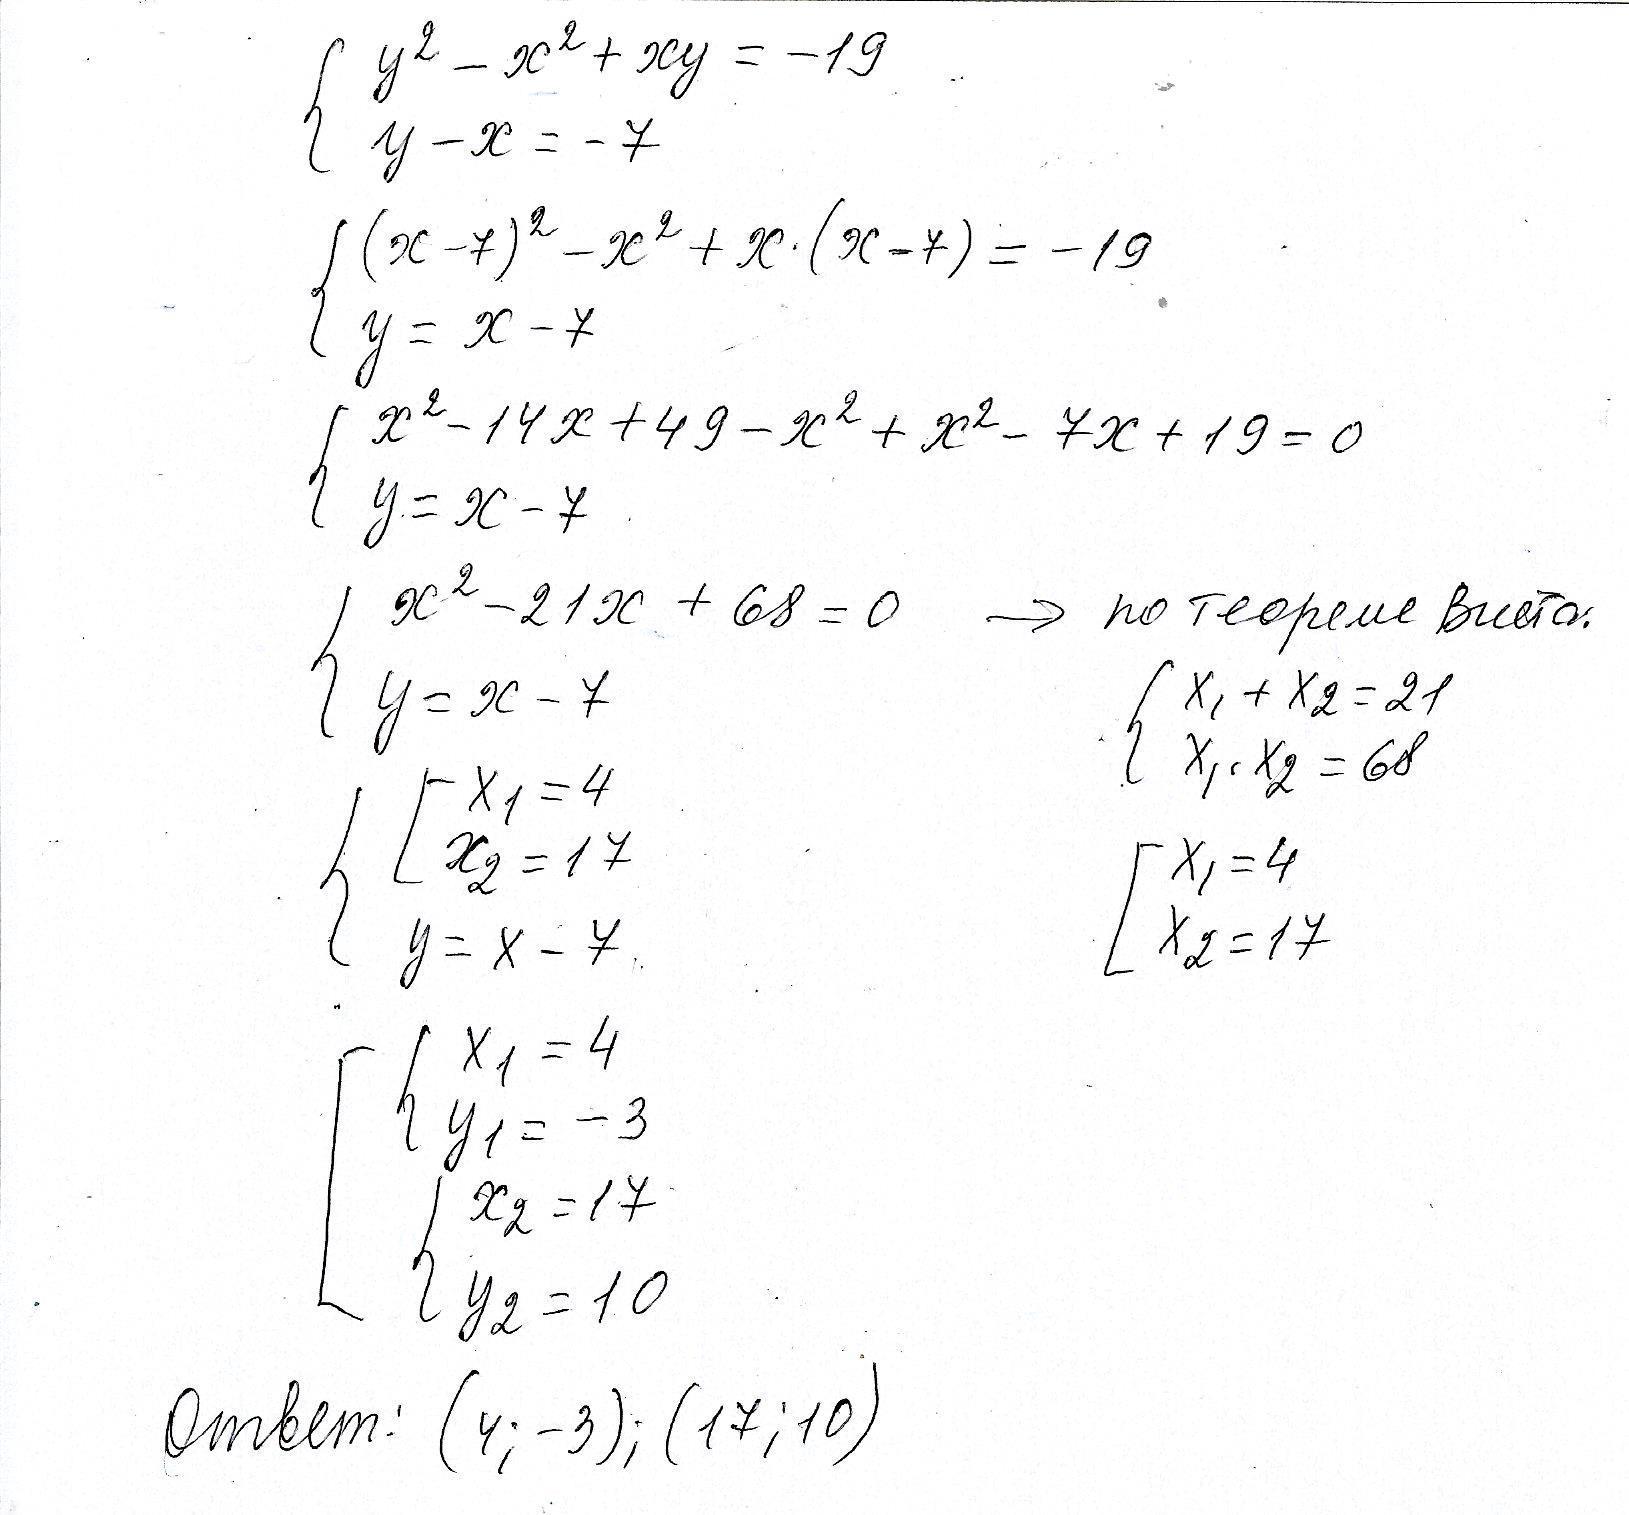 y² - x² + xy = -19
y - x = -7
(x-7)² - x² + x·(x-7) = -19
y = x - 7
x² - 14x + 49 - x² + x² - 7x + 19 = 0
y = x - 7
x² - 21x + 68 = 0 → по теореме Виета:
y = x - 7
x₁ + x₂ = 21
x₁·x₂ = 68
x₁ = 4
x₂ = 17
y = x - 7
x₁ = 4
x₂ = 17
x₁ = 4
y₁ = -3
x₂ = 17
y₂ = 10
Ответ: (4; -3); (17; 10)